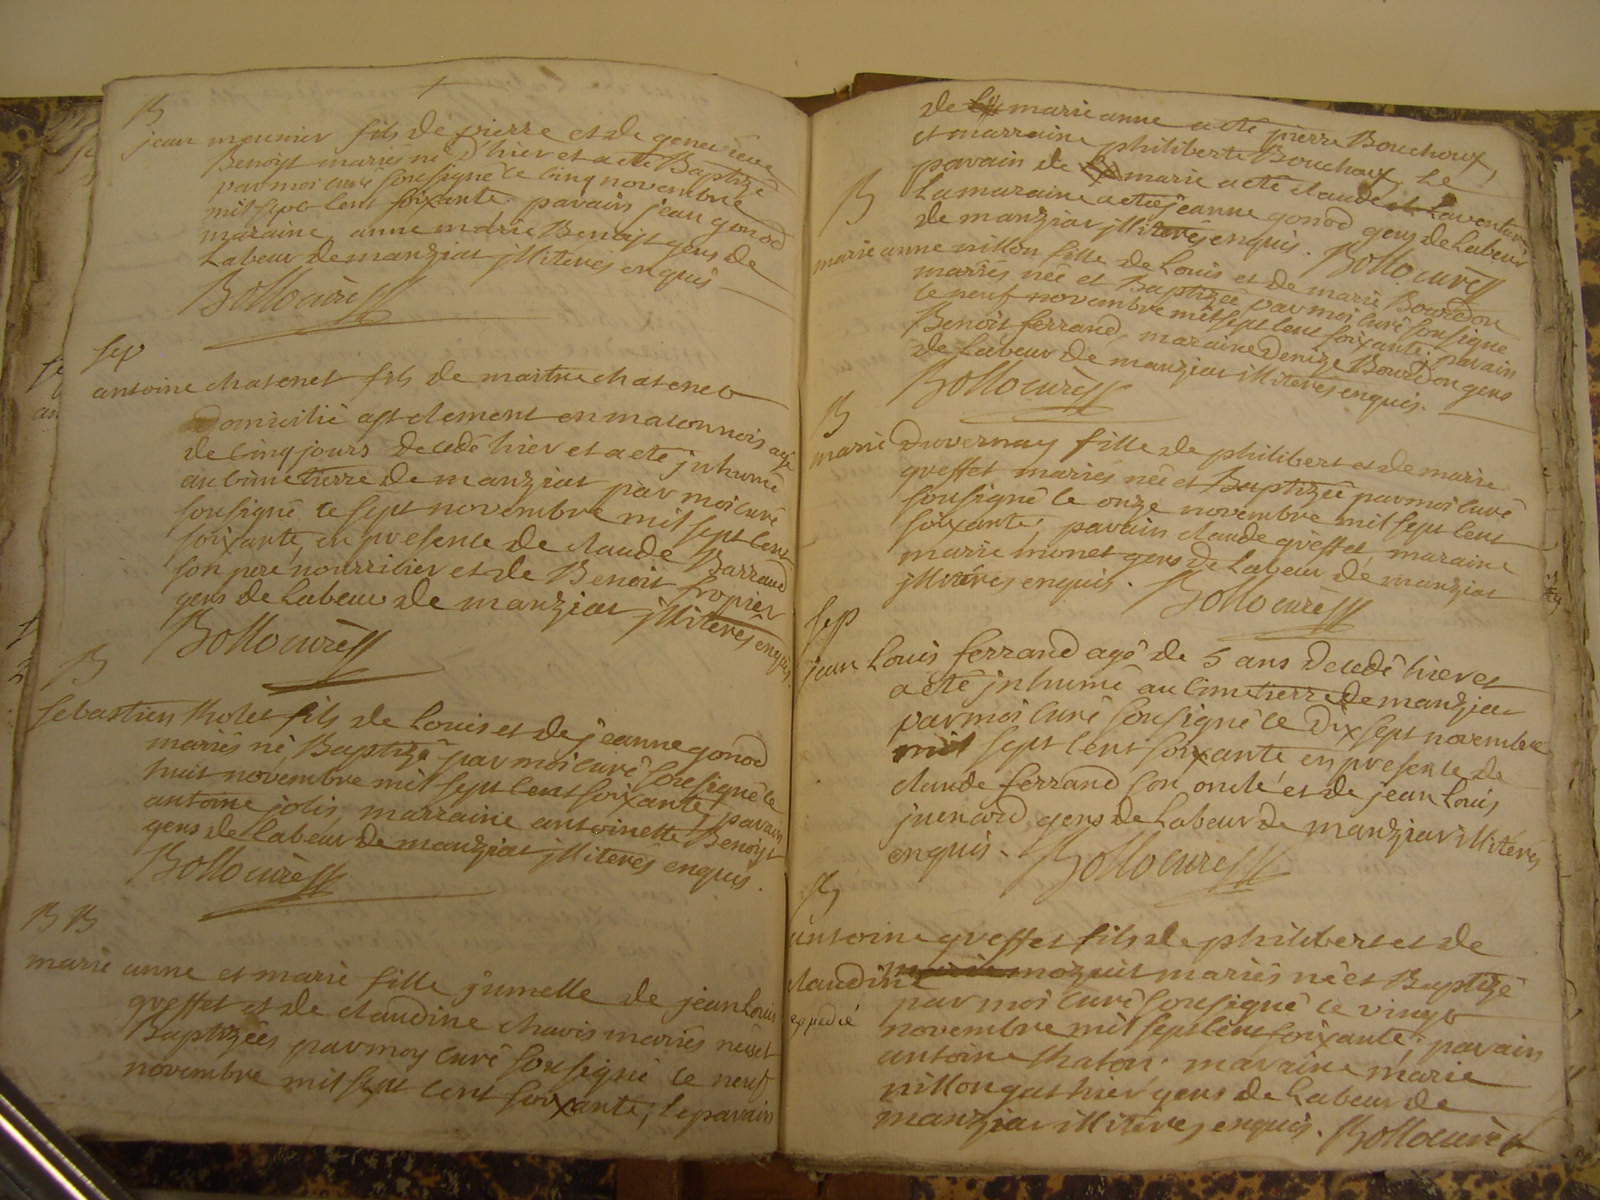 B
jean meunier fils de pierre et de genevieve
Benoist mariés né d'hier et a eté Baptizé
par moi curé sousigné le cinq novembre
mil sept cent soixante parain jean gonod
maraine anne marie Benoist gens de
Labeur de manziat illiterés enquis
Bollo curé
sep
antoine chatenet fils de maitre chatenet
Domicilié a st clement en maconnois agé
de cinq jours decedé hier et a eté inhumé
au cimetierre de manziat par moi curé
sousigné le sept novembre mil sept cent
soixante en presence de claude Barraud
son pere nourricier et de Benoit fropier
gens de Labeur de manziat illiterés enquis
Bollo curé
B
sebastien tholet fils de Louis et de jeanne gonod
mariés né, Baptizé par moi curé sousigné le
huit novembre mil sept cent soixante, parain
antoine jolis, marraine antoinette Benoist
gens de Labeur de manziat illiterés enquis.
Bollo curé
B B
marie anne et marie fille jumelle de jean Louis
greffet et de claudine chavis mariés nées et
Baptizées par moy curé sousigné le neuf
novembre mil sept cent soixante; le parain
de marie anne a eté pierre Bouchoux,
et marraine philiberte Bouchoux, Le
parain de marie a eté claude
La maraine a eté jeanne gonod gens de Labeur
de manziat illiterés enquis. Bollo curé
B
marie anne nillon fille de Louis et de marie Bourdon
mariés née et Baptizée par moi curé sousigné
le neuf novembre mil sept cent soixante; parain
Benoit ferrand, maraine Denize Bourdon gens
de Labeur de manziat illiterés enquis.
Bollo curé
B
marie Duvernay fille de philibert et de marie
greffet mariés née et Baptizée par moi curé
sousigné le onze novembre mil sept cent
soixante; parain claude greffet, maraine
marie monet gens de Labeur de manziat
illiterés enquis. Bollo curé
sep
jean Louis ferrand agé de 5 ans decedé hier et
a eté inhumé au cimetierre de manziat
par moi curé sousigné le Dix sept novembre
mil sept cent soixante en presence de
claude ferrand son oncle et de jean Louis
juenard gens de Labeur de manziat illiterés
enquis. Bollo curé
B
antoine greffet fils de philibert et de
claudine mozuit mariés né et Baptizé
par moi curé sousigné le vingt
expedié
novembre mil sept cent soixante; parain
antoine chaton. maraine marie
nillon gens de Labeur de
manziat illiterés enquis. Bollo curé